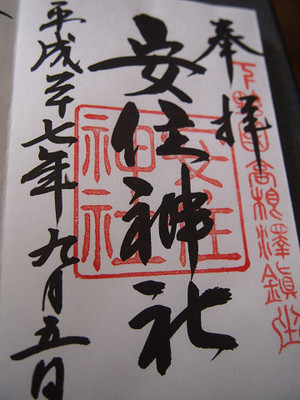 奉拝
下野国高根澤鎮坐
安住神社
安住神社
平成二十七年九月五日